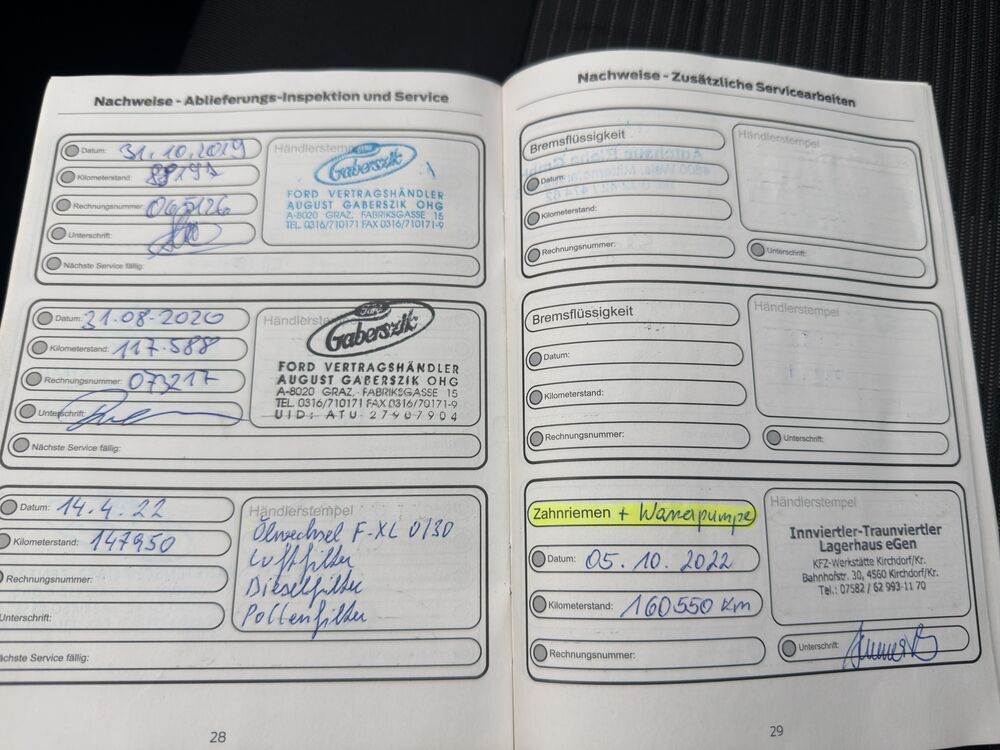 Nachweise - Ablieferungs-Inspektion und Service
Datum: 31.10.2019
Kilometerstand:
Rechnungsnummer: 065126
Unterschrift:
Nächste Service fällig:
Händlerstempel
Ford
Gaberszik
FORD VERTRAGSHÄNDLER
AUGUST GABERSZIK OHG
A-8020 GRAZ, FABRIKSGASSE 15
TEL. 0316/710171 FAX 0316/710171-9
Datum: 31.08.2020
Kilometerstand: 117.588
Rechnungsnummer: 073217
Unterschrift:
Nächste Service fällig:
Händlerstempel
Ford
Gaberszik
FORD VERTRAGSHÄNDLER
AUGUST GABERSZIK OHG
A-8020 GRAZ, FABRIKSGASSE 15
TEL. 0316/710171 FAX 0316/710171-9
UID: ATU 27907904
Datum: 14.4.22
Kilometerstand: 147950
Rechnungsnummer:
Unterschrift:
Nächste Service fällig:
Händlerstempel
Ölwechsel F-XL 0/30
Luftfilter
Dieselfilter
Pollenfilter
28
Nachweise - Zusätzliche Servicearbeiten
Bremsflüssigkeit
Datum:
Kilometerstand:
Rechnungsnummer:
Händlerstempel
Unterschrift:
Bremsflüssigkeit
Datum:
Kilometerstand:
Rechnungsnummer:
Händlerstempel
Unterschrift:
Zahnriemen + Wasserpumpe
Datum: 05.10.2022
Kilometerstand: 160550 Km
Rechnungsnummer:
Händlerstempel
Innviertler-Traunviertler
Lagerhaus eGen
KFZ-Werkstätte Kirchdorf/Kr.
Bahnhofstr. 30, 4560 Kirchdorf/Kr.
Tel.: 07582 / 62 993-11 70
Unterschrift:
29